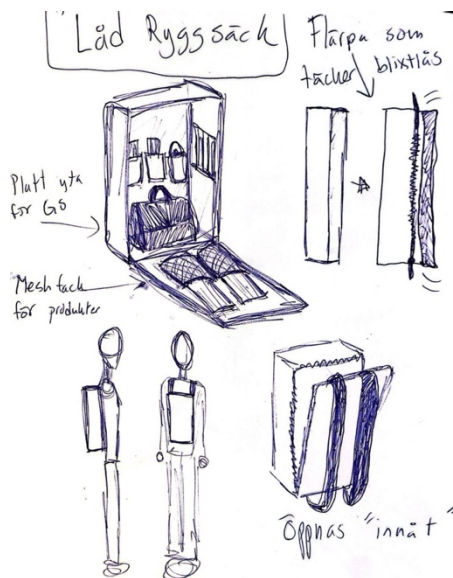 "Låd Ryggsäck
Flärpa som
täcker blixtlås
Platt yta
för GS
Meshfack
för produkter
Öppnas "innåt"